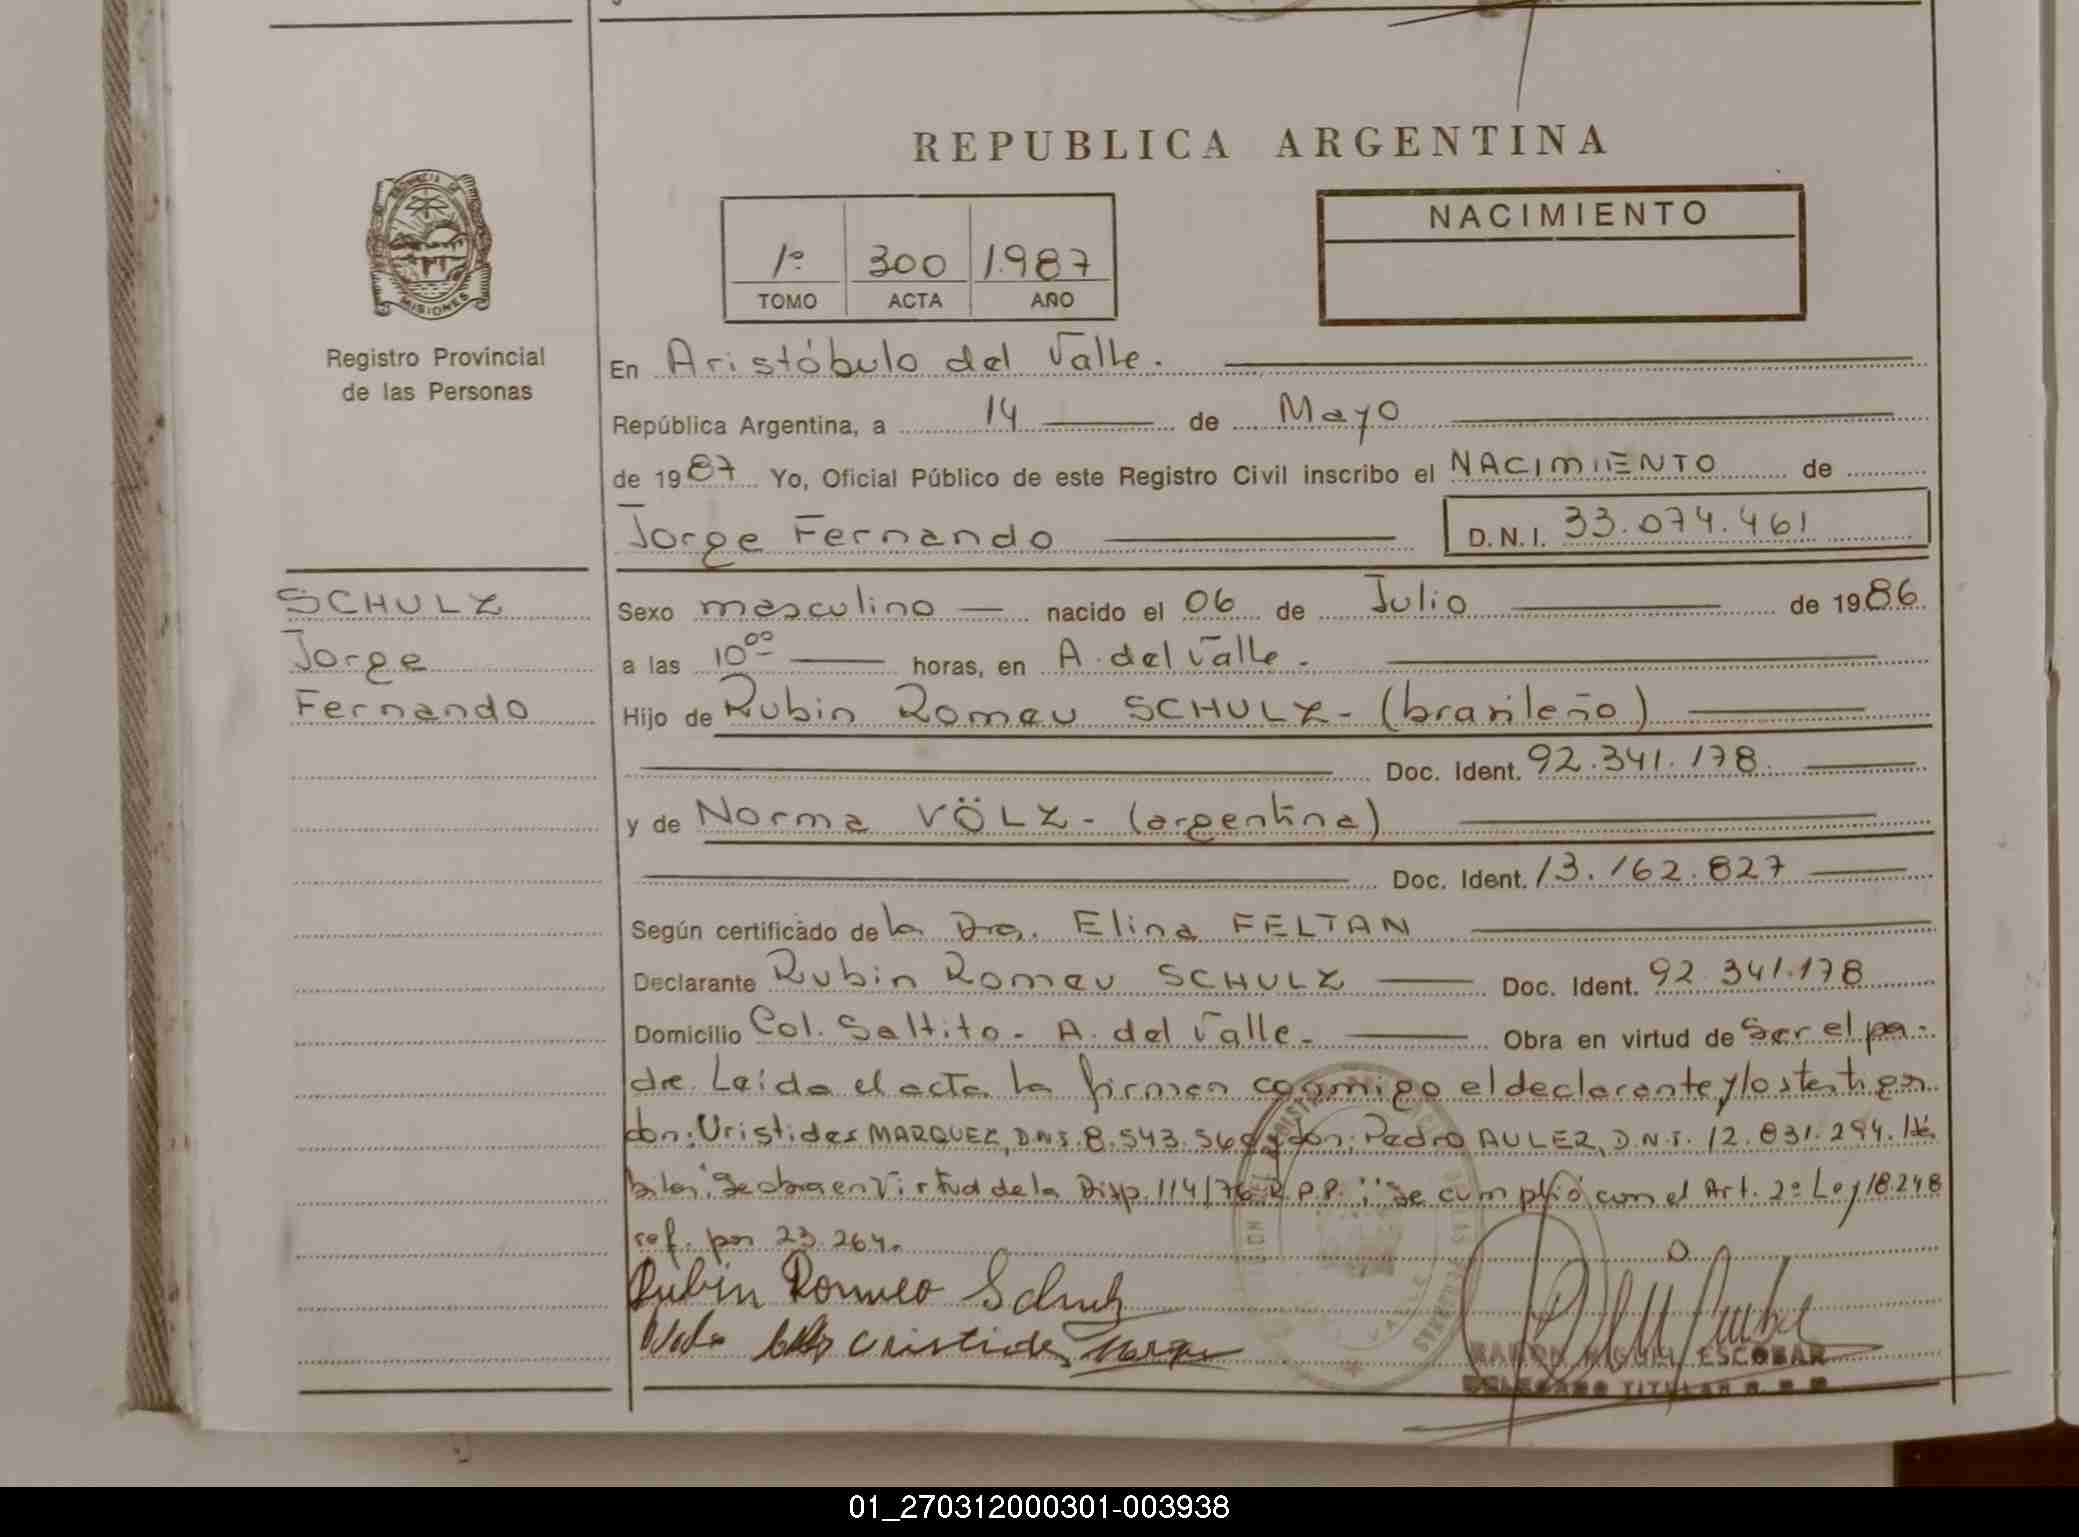 REPUBLICA ARGENTINA
PROVINCIA DE
MISIONES
Registro Provincial
de las Personas
1º 300 1.987
TOMO ACTA AÑO
NACIMIENTO
En Aristóbulo del Valle.
República Argentina, a 14 de Mayo
de 1987 Yo, Oficial Público de este Registro Civil inscribo el NACIMIENTO de
Jorge Fernando D.N.I. 33.074.461
SCHULZ
Jorge
Fernando
Sexo masculino nacido el 06 de Julio de 1986
a las 10ºº horas, en A. del Valle.
Hijo de Rubin Romeu SCHULZ - (brasileño)
Doc. Ident. 92.341.178
y de Norma VÖLZ - (argentina)
Doc. Ident. 13.162.827
Según certificado de la Dra. Elina FELTAN
Declarante Rubin Romeu SCHULZ Doc. Ident. 92.341.178
Domicilio Col. Saltito - A. del Valle - Obra en virtud de Ser el pa-
dre. Leida el acta la firman conmigo el declarante y los testigos
don: Uristides MARQUEZ, D.N.I. 8.543. don: Pedro AULER, D.N.I. 12.831.294. Há-
biles. Se obra en Virtud de la Disp. 114/76 R.P.P. "Se cumplió con el Art. 2º Ley 18.248
ref. por 23.264.
Rubin Romeo Schulz
Uristides
RAMON MIGUEL ESCOBAR
DELEGADO TITULAR R.P.P.
01_270312000301-003938